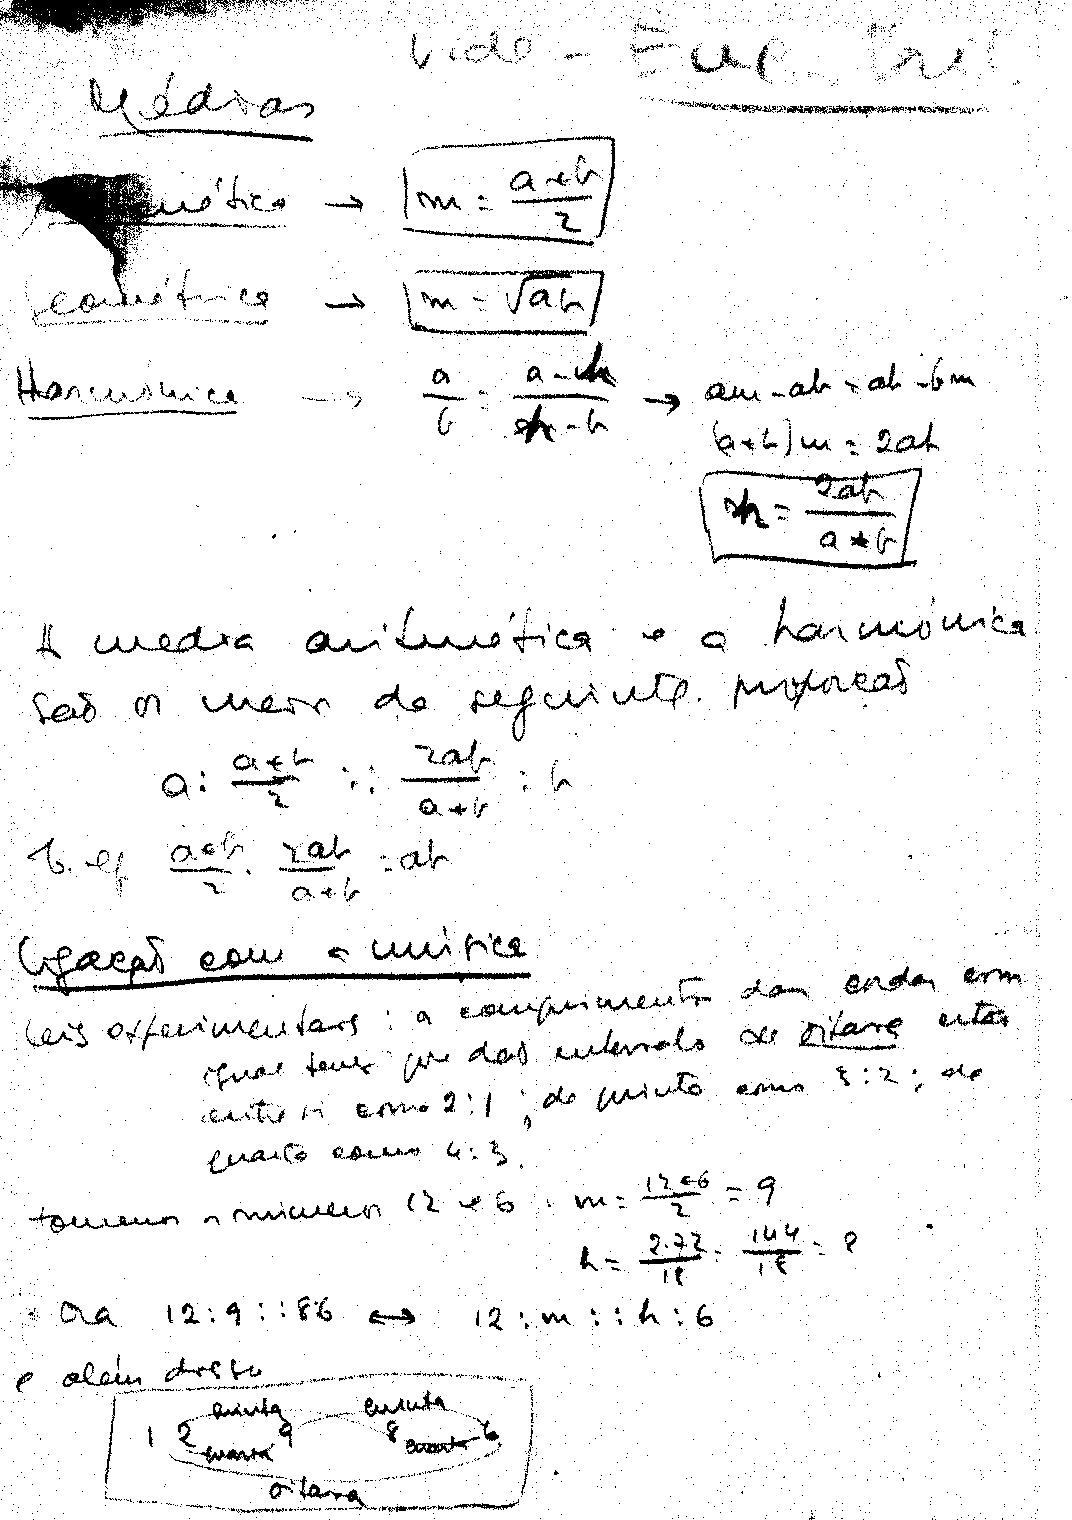 Vide -
Médias
Aritmética → m = (a+b)/2
Geométrica → m = √ab
Harmónica → a/b = (a-h)/(h-b) → am - ab = ab - bm
(a+b)m = 2ab
h = 2ab/(a+b)
A media aritmética e a harmónica
são os meios da seguinte proporção
a : (a+b)/2 :: 2ab/(a+b) : b
(a+b)/2 · 2ab/(a+b) = ab
Ligação com a música
Leis experimentais : o comprimento das cordas com
igual tensão que dão intervalo de oitava estão
entre si como 2:1 ; de quinta como 3:2 ; de
quarta como 4:3.
tomemos os números 12 e 6 : m = (12+6)/2 = 9
h = 2.72/18 = 144/18 = 8
Ora 12:9::86 ↔ 12:m::h:6
e além disso
quinta quinta
12 9 8 6
quarta quarta
oitava